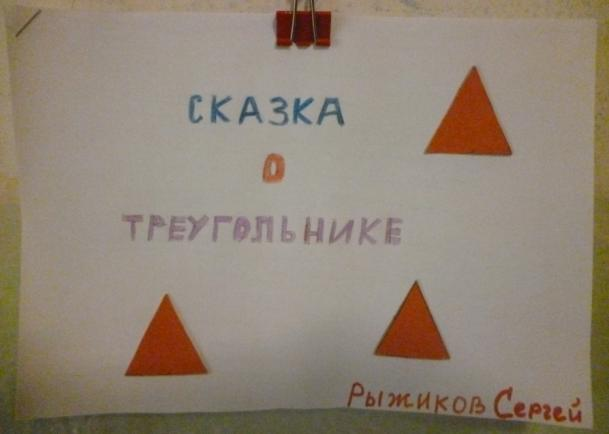 СКАЗКА
О
ТРЕУГОЛЬНИКЕ
РЫЖИКОВ Сергей